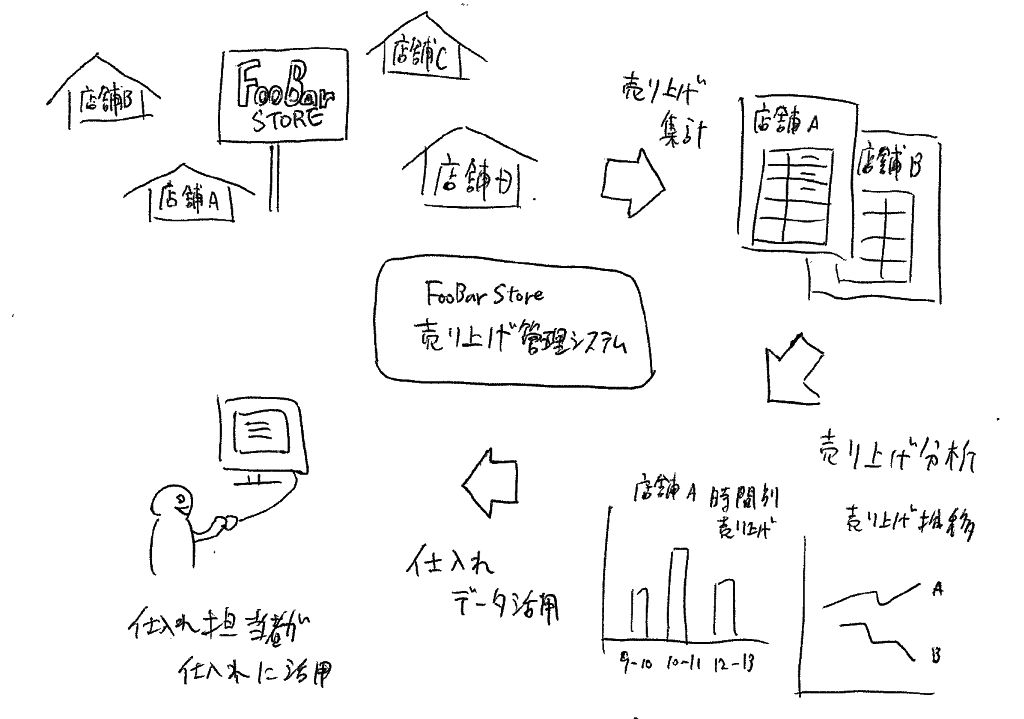 店舗C
店舗B
FooBar
STORE
店舗A
店舗D
売り上げ
集計
店舗A
店舗B
FooBar Store
売り上げ管理システム
売り上げ分析
店舗A 時間別
売り上げ
9-10 10-11 12-13
売り上げ推移
A
B
仕入れ
データ活用
仕入れ担当者が
仕入れに活用